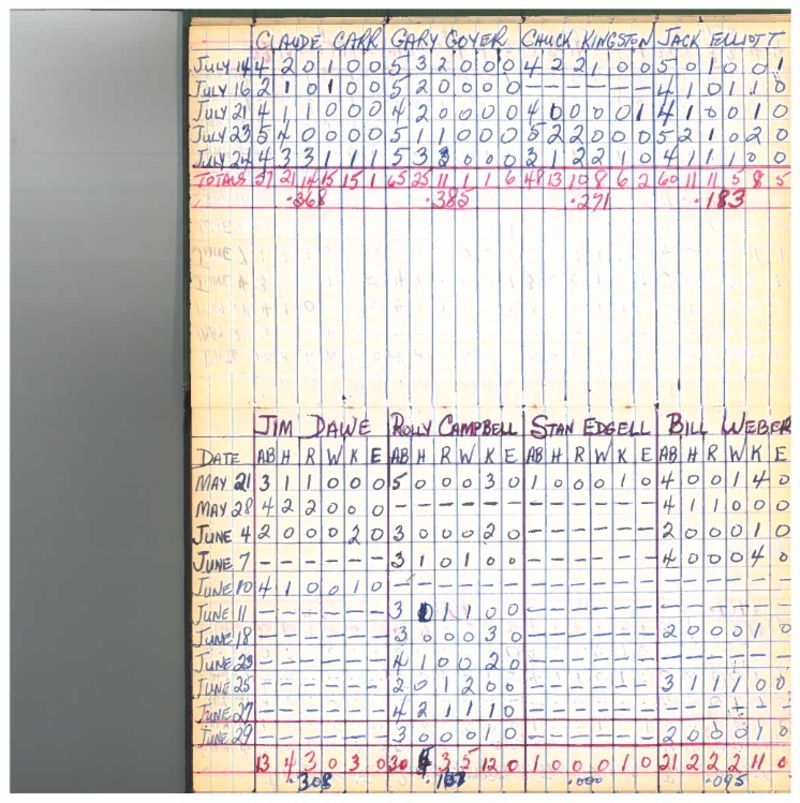 CLAUDE CARR GARY GOYER CHUCK KINGSTON JACK ELLIOTT
JULY 14 4 2 0 1 0 0 5 3 2 0 0 0 4 2 2 1 0 0 5 0 1 0 0 1
JULY 16 2 1 0 1 0 0 5 2 0 0 0 0 - - - - - - 4 1 0 1 1 0
JULY 21 4 1 1 0 0 0 4 2 0 0 0 0 4 0 0 0 0 1 4 1 0 0 1 0
JULY 23 5 4 0 0 0 0 5 1 1 0 0 0 5 2 2 0 0 0 5 2 1 0 2 0
JULY 24 4 3 3 1 1 1 5 3 3 0 0 0 3 1 2 2 1 0 4 1 1 1 0 0
TOTALS 57 21 14 15 15 1 65 25 11 1 1 6 48 13 10 8 6 2 60 11 11 5 8 5
.368 .385 .271 .183
JIM DAWE ROLLY CAMPBELL STAN EDGELL BILL WEBER
DATE AB H R W K E AB H R W K E AB H R W K E AB H R W K E
MAY 21 3 1 1 0 0 0 5 0 0 0 3 0 1 0 0 0 1 0 4 0 0 1 4 0
MAY 28 4 2 2 0 0 0 - - - - - - - - - - - - 4 1 1 0 0 0
JUNE 4 2 0 0 0 2 0 3 0 0 0 2 0 - - - - - - 2 0 0 0 1 0
JUNE 7 - - - - - - 3 1 0 1 0 0 - - - - - - 4 0 0 0 4 0
JUNE 10 4 1 0 0 1 0 - - - - - - - - - - - - - - - - - -
JUNE 11 - - - - - - 3 0 1 1 0 0 - - - - - - - - - - - -
JUNE 18 - - - - - - 3 0 0 0 3 0 - - - - - - 2 0 0 0 1 0
JUNE 23 - - - - - - 4 1 0 0 2 0 - - - - - - - - - - - -
JUNE 25 - - - - - - 2 0 1 2 0 0 - - - - - - 3 1 1 1 0 0
JUNE 27 - - - - - - 4 2 1 1 1 0 - - - - - - - - - - - -
JUNE 29 - - - - - - 3 0 0 0 1 0 - - - - - - 2 0 0 0 1 0
13 4 3 0 3 0 30 4 3 5 12 0 1 0 0 0 1 0 21 2 2 2 11 0
.308 .000 .095